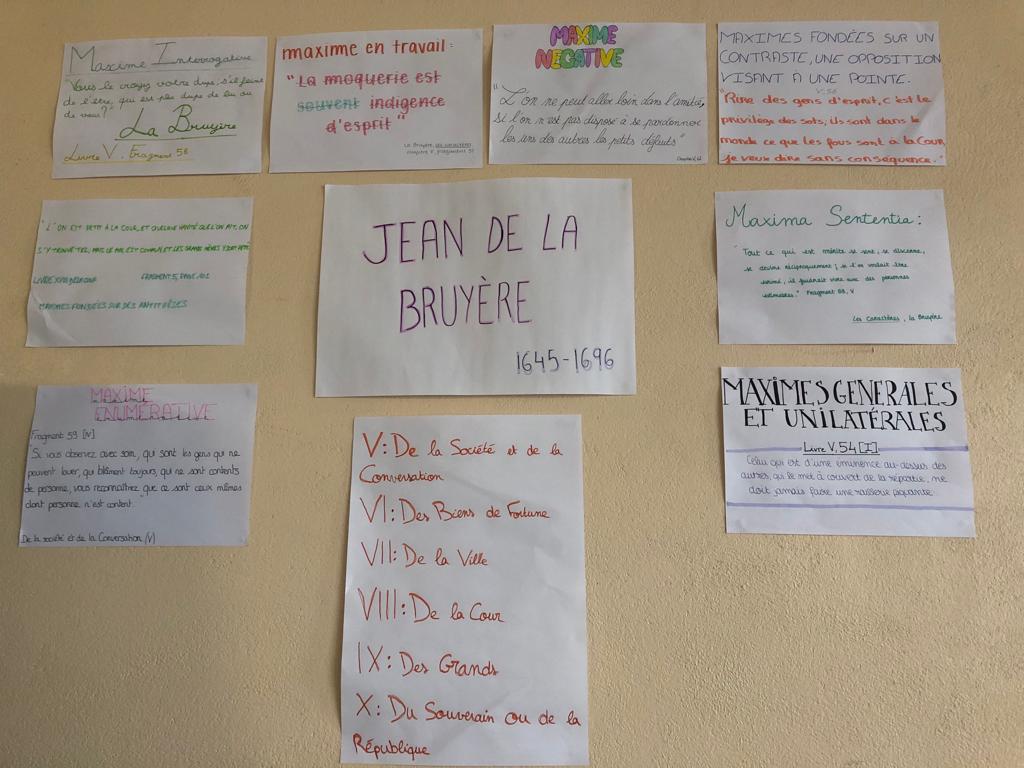 Maxime Interrogative
"Vous le croyez votre dupe, s'il feint
de l'être, qui est plus dupe de lui ou
de vous?"
La Bruyère
Livre V. Fragment 58
maxime en travail:
"La moquerie est
souvent indigence
d'esprit"
La Bruyère, Les caractères
chapitre V, fragments 57
MAXIME
NEGATIVE
"L'on ne peut aller loin dans l'amitié,
si l'on n'est pas disposé à se pardonner
les uns des autres les petits défauts"
Chapitre V, 62
MAXIMES FONDÉES SUR UN
CONTRASTE, UNE OPPOSITION
VISANT A UNE POINTE.
V.56
"Rire des gens d'esprit, c'est le
privilège des sots; ils sont dans le
monde ce que les fous sont à la Cour,
je veux dire sans conséquence."
"L'ON EST PETIT À LA COUR, ET QUELQUE VANITÉ QUE L'ON AIT, ON
S'Y TROUVE TEL; MAIS LE MAL EST COMMUN, ET LES GRANDS MÊMES Y SONT PETITS.
FRAGMENT 5, PAGE 101
MAXIMES FONDÉES SUR DES ANTITHÈSES
JEAN DE LA
BRUYÈRE
1645-1696
Maxima Sententia:
"Tout ce qui est mérite se sent, se discerne,
se devine réciproquement; si l'on voulait être
estimé, il faudrait vivre avec des personnes
estimables." Fragment 88, V
Les Caractères, la Bruyère
MAXIME
ENUMÉRATIVE
Fragment 59 [IV]
"Si vous observez avec soin, qui sont les gens qui ne
peuvent louer, qui blâment toujours, qui ne sont contents
de personne, vous reconnaîtrez que ce sont ceux mêmes
dont personne n'est content.
De la société et de la Conversation (V)
MAXIMES GENERALES
ET UNILATÉRALES
Livre V, 54 [I]
Celui qui est d'une éminence au-dessus des
autres, qui le met à couvert de la répartie, ne
doit jamais faire une raillerie piquante.
V: De la Société et de la
Conversation
VI: Des Biens de Fortune
VII: De la Ville
VIII: De la Cour
IX: Des Grands
X: Du Souverain ou de la
République